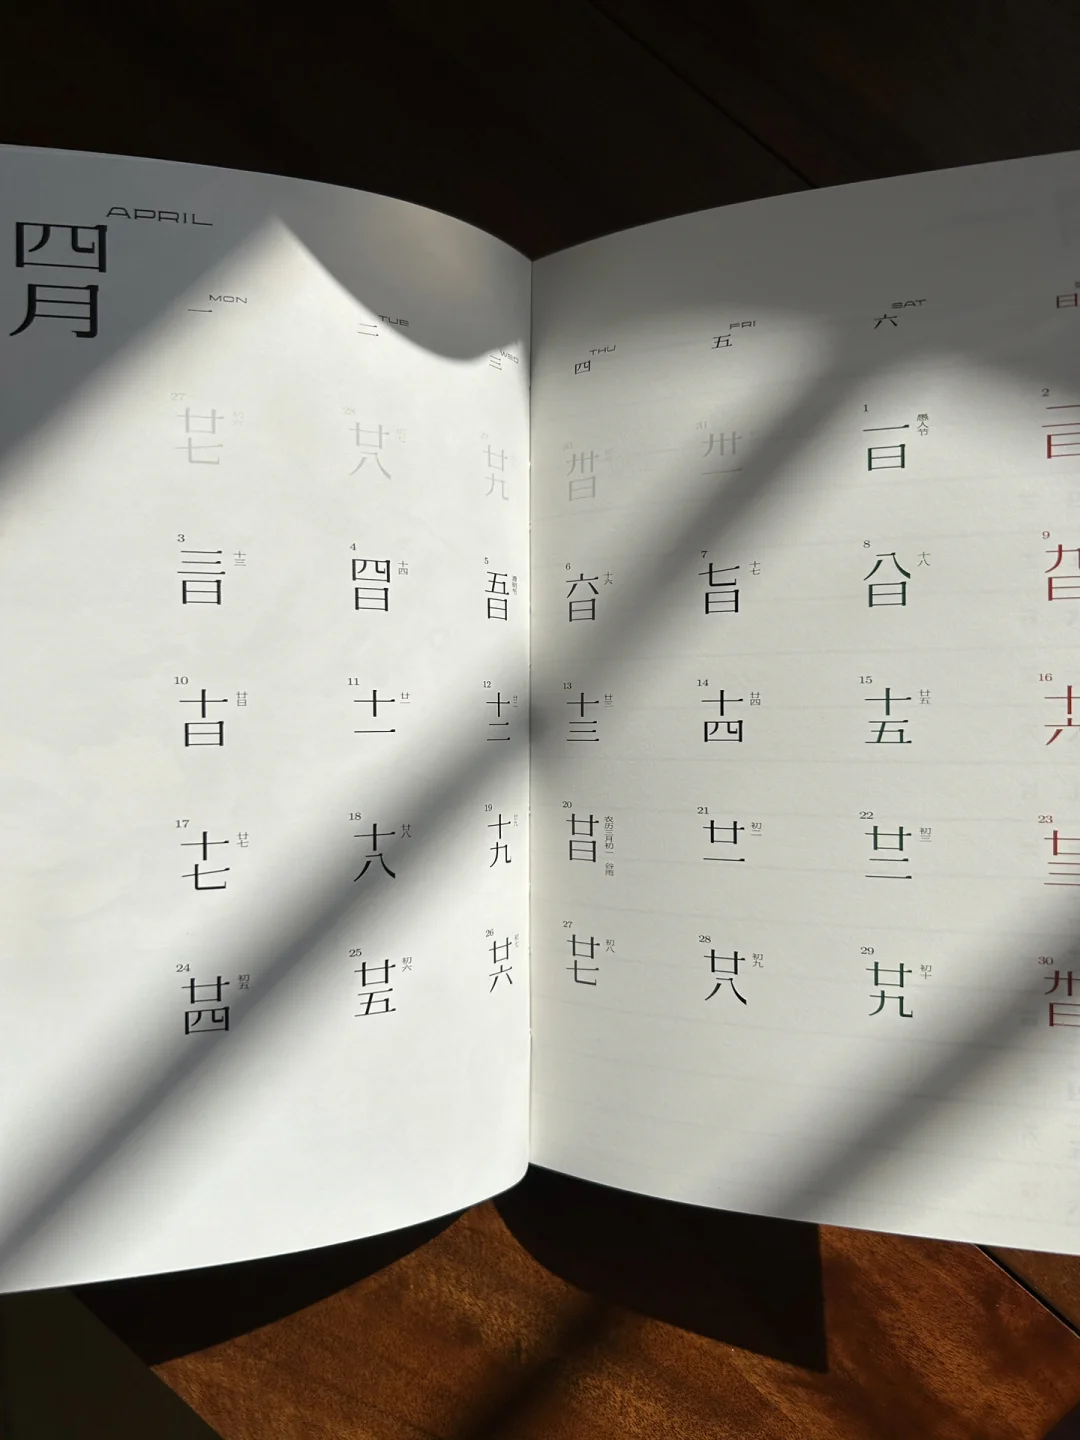 APRIL
四月
MON
一
TUE
二
WED
三
THU
四
FRI
五
SAT
六
日
27
廿七
28
廿八
廿九
30
卅日
31
卅一
1
一日
愚人节
2
二日
3
三日
十三
4
四日
十四
5
五日
清明节
6
六日
十六
7
七日
十七
8
八日
十八
9
九日
10
十日
廿日
11
十一
廿一
12
十二
廿二
13
十三
廿三
14
十四
廿四
15
十五
廿五
16
十六
17
十七
廿七
18
十八
廿八
19
十九
廿九
20
廿日
农历三月初一 谷雨
21
廿一
初二
22
廿二
初三
23
廿三
24
廿四
初五
25
廿五
初六
26
廿六
初七
27
廿七
初八
28
廿八
初九
29
廿九
初十
30
卅日